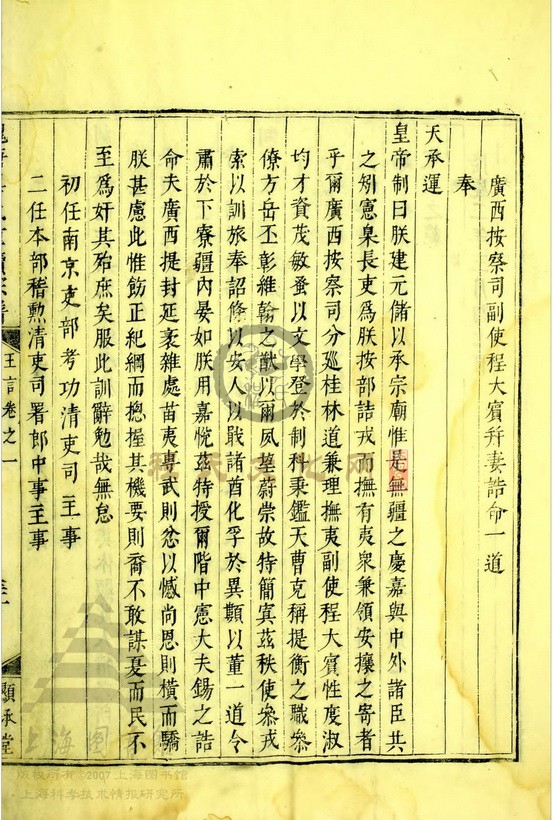 廣西按察司副使程大賓幷妻誥命一道
奉
天承運
皇帝制曰朕建元儲以承宗廟惟是無疆之慶嘉與中外諸臣共
之矧憲臬長吏爲朕按部詰戎而撫有夷衆兼領安攘之寄者
乎爾廣西按察司分廵桂林道兼理撫夷副使程大賓性度淑
均才資茂敏蚤以文學登於制科秉鑑天曹克稱提衡之職參
僚方岳丕彰維翰之猷以爾夙望蔚崇故特簡寘茲秩使參戎
索以訓旅奉詔條以安人以戢諸酋化孚於異顓以董一道令
肅於下寮疆内晏如朕用嘉悦茲特授爾階中憲大夫錫之誥
命夫廣西提封延袤雜處苗夷專武則忿以憾尚恩則橫而驕
朕甚慮此惟飭正紀綱而揔握其機要則裔不敢謀憂而民不
至爲奸其殆庶矣服此訓辭勉哉無怠
初任南京吏部考功清吏司主事
二任本部稽勲清吏司署郎中事主事
王言卷之一
顯承堂
上海圖
版权所有©2007上海图书馆
上海科学技术情报研究所